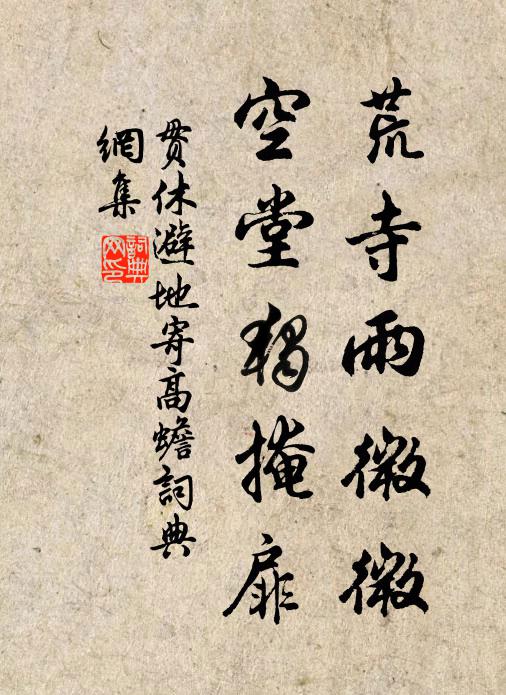 荒寺雨微微
空堂獨掩扉
貫休避地寄高蟾詞典
網集
詞典網印